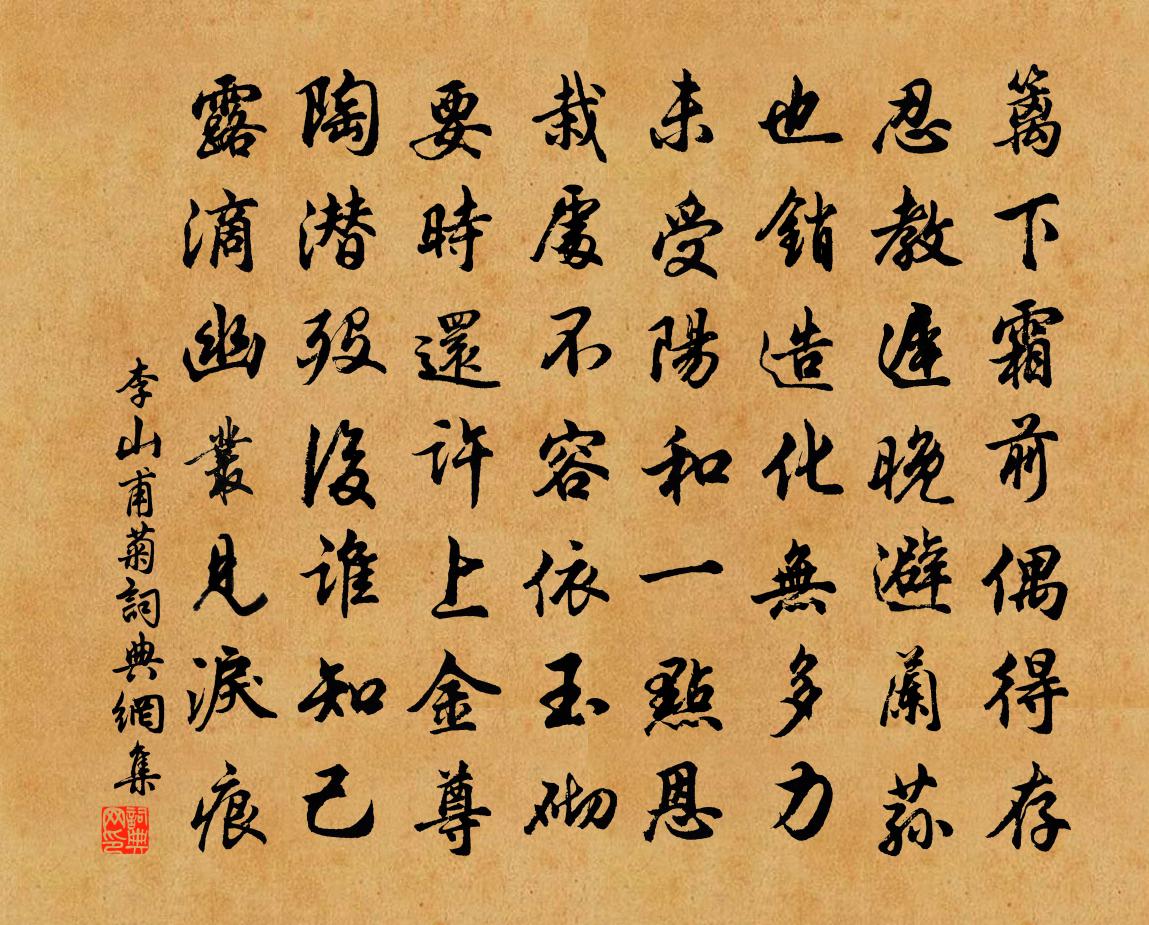 篱下霜前偶得存
忍教遲晚避蘭蓀
也銷造化無多力
未受陽和一點恩
栽處不容依玉砌
要時還許上金尊
陶潜歿後誰知己
露滴幽叢見淚痕
李山甫菊詞典網集
詞典网印